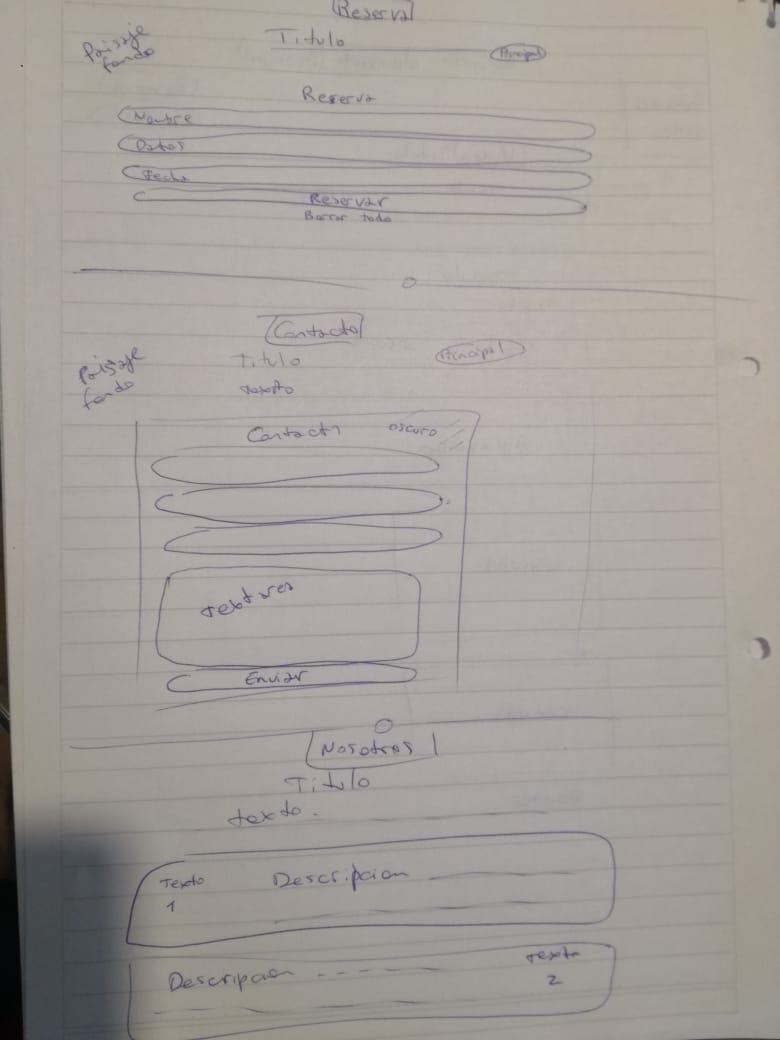 Reserva
Paisaje fondo
Titulo
Principal
Reserva
Nombre
Datos
Fecha
Reservar
Borrar todo
Contacto
Paisaje fondo
Titulo
Principal
texto
Contacto
oscuro
Enviar
Nosotros
Titulo
texto.
Texto
Descripcion
1
Descripcion
Texto
2